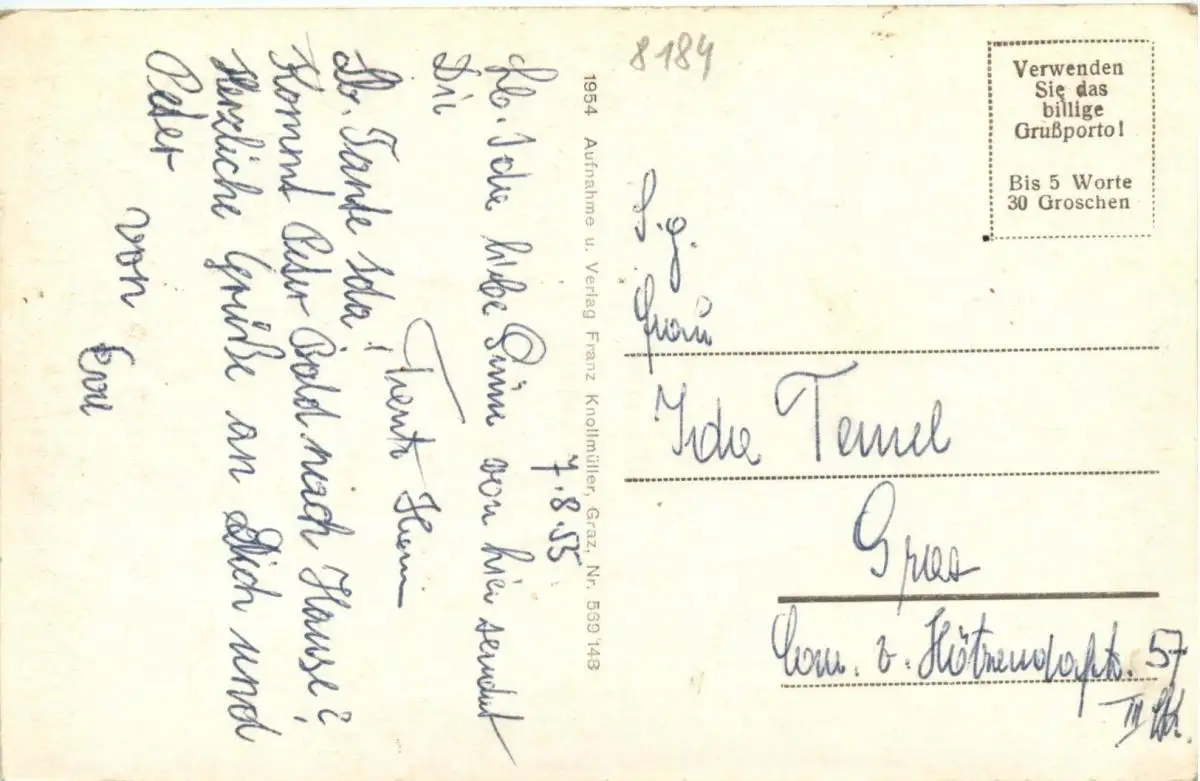 8184
Verwenden
Sie das
billige
Grußporto!
Bis 5 Worte
30 Groschen
S. g.
Frau
Ida Temel
Graz
Con. v. Hötzendofstr. 57
III
1954 Aufnahme u. Verlag Franz Knollmüller, Graz, Nr. 569'143
7.8.55
Lb. Ida liebe von hier sendet
Dir
Heini
Lb. Tante Ida!
Kommt Peter bald nach Hause?
Herzliche Grüße an Dich und
Peter
von